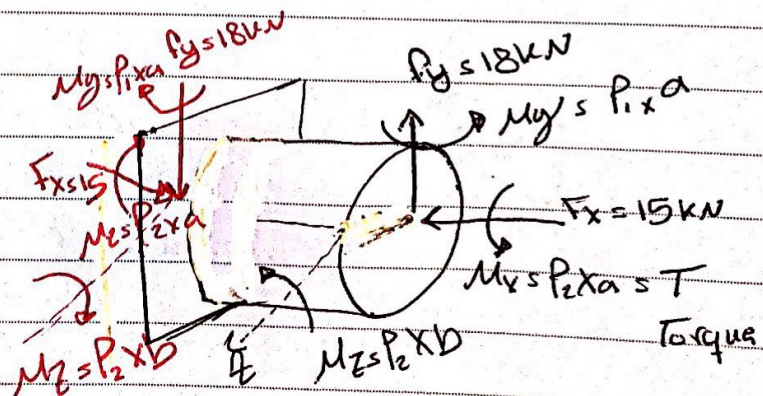 My = P₁xa fy = 18kN
Fx = 15
Mz = P₂xa
Mz = P₂ x b
Py = 18kN
My = P₁ x a
Fx = 15kN
Mx = P₂xa = T
Torque
Z
Mz = P₂ x b